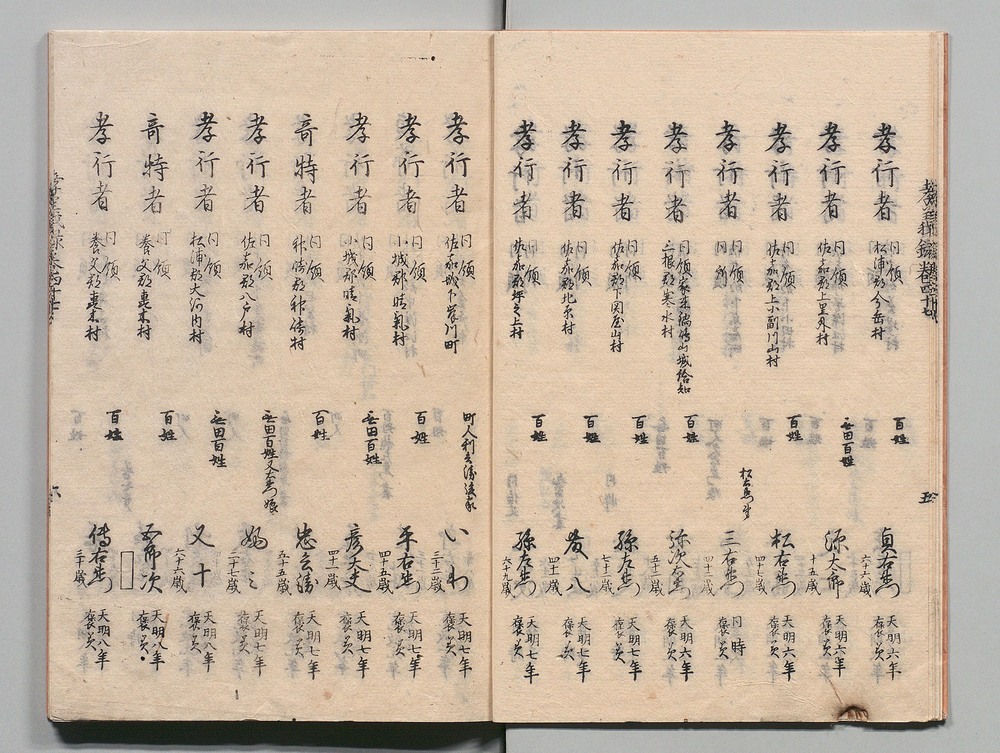 孝行者 同領 松浦郡今岳村 百姓 貞右衛門 六十六歳 天明六年 褒美
孝行者 同領 佐嘉郡上里外村 無田百姓 源太郎 十五歳 天明六年 褒美
孝行者 同領 佐嘉郡上小副川山村 百姓 松右衛門 四十七歳 天明六年 褒美
孝行者 同領 同所 三右衛門 四十二歳 同時 褒美
孝行者 三根郡寒水村 百姓 弥次右衛門 五十一歳 天明六年 褒美
孝行者 同領 佐嘉郡下関屋山村 百姓 孫左衛門 七十歳 天明七年 褒美
孝行者 同領 佐嘉郡北原村 百姓 発八 四十一歳 天明七年 褒美
孝行者 同領 佐嘉郡坪之上村 百姓 孫左衛門 六十九歳 天明七年 褒美
五
孝行者 同領 佐嘉城下 町 町人 いわ 三十二歳 天明七年 褒美
孝行者 同領 小城郡晴気村 百姓 平右衛門 四十五歳 天明七年 褒美
孝行者 同領 小城郡晴気村 無田百姓 彦大夫 四十一歳 天明七年 褒美
奇特者 同領 神崎郡神崎村 百姓 忠兵衛 五十五歳 天明七年 褒美
孝行者 同領 佐嘉郡八戸村 無田百姓又左衛門娘 二十七歳 天明七年 褒美
孝行者 同領 松浦郡大河内村 無田百姓 又十 六十六歳 天明八年 褒美
奇特者 同領 養父郡轟木村 百姓 五郎次 天明八年 褒美
孝行者 同領 養父郡轟木村 百姓 傳右衛門 三十歳 天明八年 褒美
六